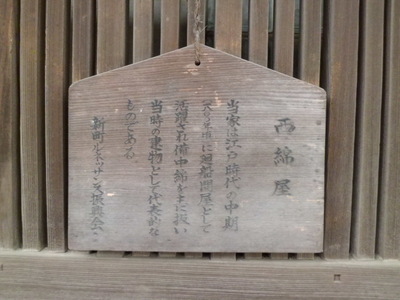 西綿屋
当家は江戸時代の中期
に廻船問屋として
活躍され備中綿を主に扱い
当時の建物として代表的な
ものである。
新町
振興会